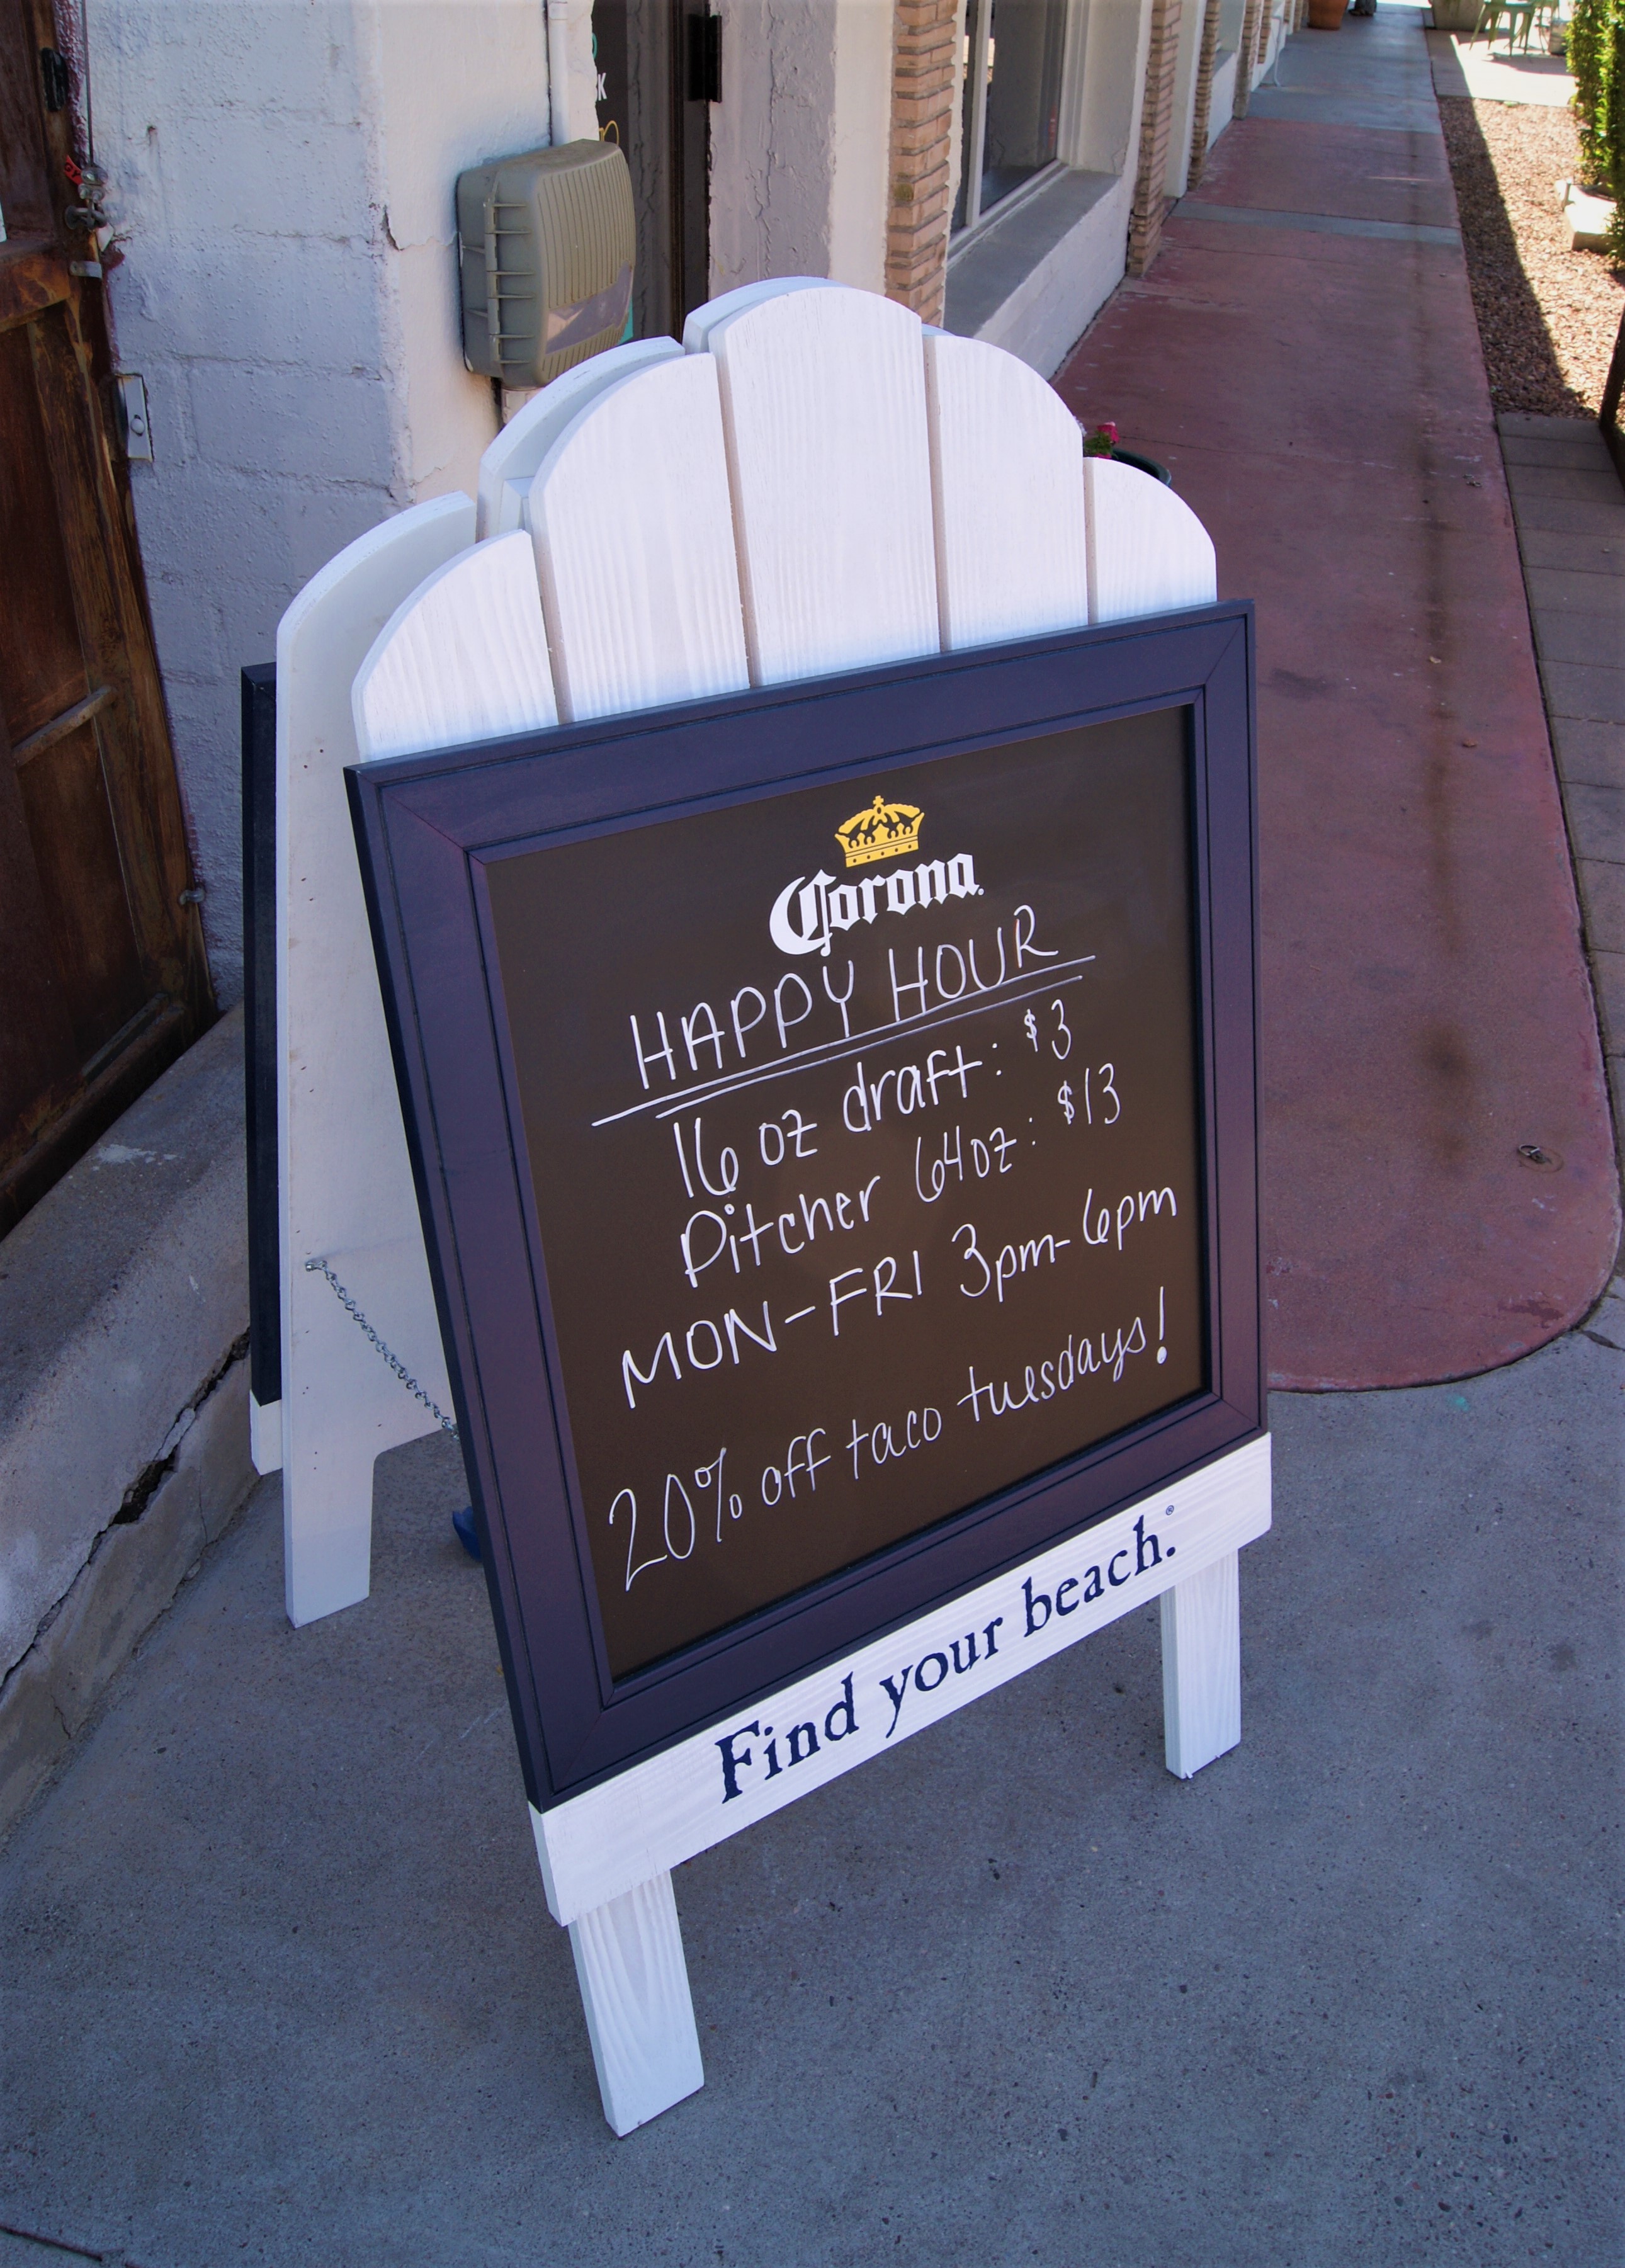 Corona
HAPPY HOUR
16 oz draft: $3
Pitcher 64oz: $13
MON-FRI 3pm-6pm
20% off taco tuesdays!
Find your beach.®